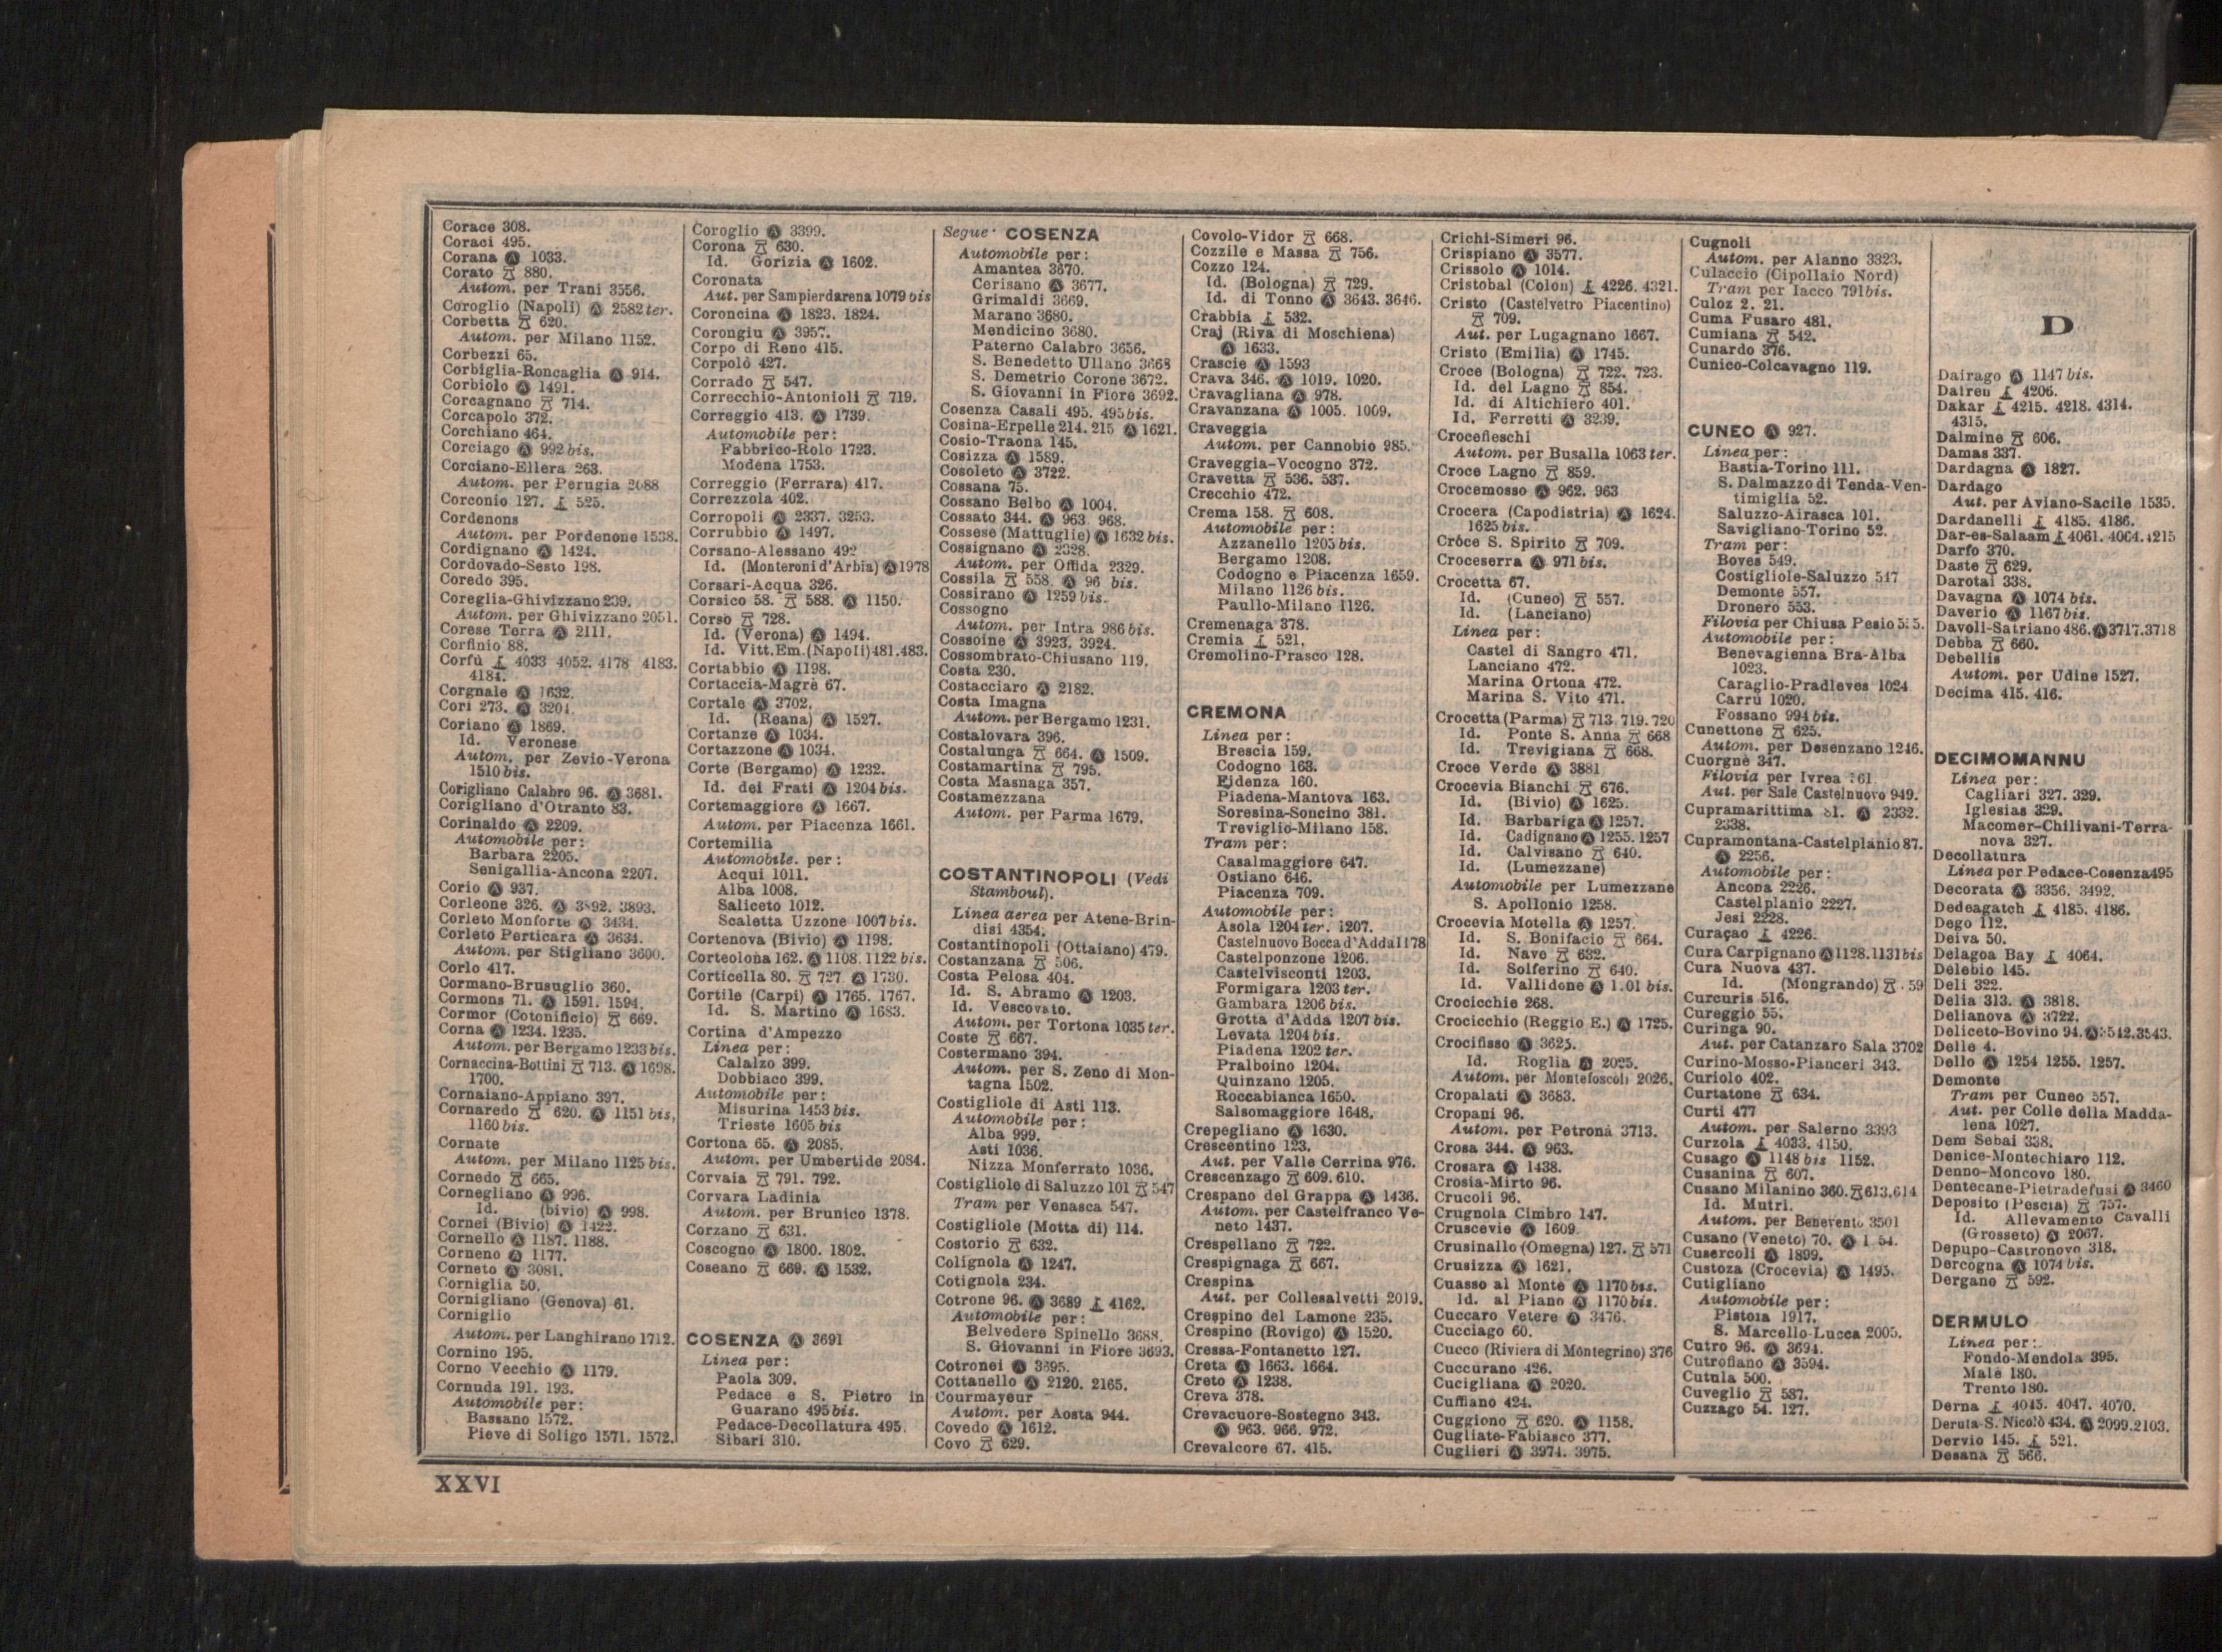 Corace 308.
Coraci 495.
Corana Ⓐ 1033.
Corato 880.
Autom. per Trani 3556.
Coroglio (Napoli) Ⓐ 2582 ter.
Corbetta 620.
Autom. per Milano 1152.
Corbezzi 65.
Corbiglia-Roncaglia Ⓐ 914.
Corbiolo Ⓐ 1491.
Corcagnano 714.
Corcapolo 372.
Corchiano 464.
Corciago Ⓐ 992 bis.
Corciano-Ellera 263.
Autom. per Perugia 2088
Corconio 127. 525.
Cordenons
Autom. per Pordenone 1538.
Cordignano Ⓐ 1424.
Cordovado-Sesto 198.
Coredo 395.
Coreglia-Ghivizzano 239.
Autom. per Ghivizzano 2051.
Corese Terra Ⓐ 2111.
Corfinio 88.
Corfù 4033 4052. 4178 4183.
4184.
Corgnale Ⓐ 1632.
Cori 273. Ⓐ 3201
Coriano Ⓐ 1869.
Id. Veronese
Autom. per Zevio-Verona
1510 bis.
Corigliano Calabro 96. Ⓐ 3681.
Corigliano d'Otranto 83.
Corinaldo Ⓐ 2209.
Automobile per:
Barbara 2205.
Senigallia-Ancona 2207.
Corio Ⓐ 937.
Corleone 326. Ⓐ 3893.
Corleto Monforte Ⓐ 3434.
Corleto Perticara Ⓐ 3634.
Autom. per Stigliano 3600.
Corlo 417.
Cormano-Brusuglio 360.
Cormons 71. Ⓐ 1591. 1594.
Cormor (Cotonificio) 669.
Corna Ⓐ 1234. 1235.
Autom. per Bergamo 1233 bis.
Cornaccina-Bottini 713. Ⓐ 1698.
1700.
Cornaiano-Appiano 397.
Cornaredo 620. Ⓐ 1151 bis,
1160 bis.
Cornate
Autom. per Milano 1125 bis.
Cornedo 665.
Cornegliano Ⓐ 996.
Id. (bivio) Ⓐ 998.
Cornei (Bivio) Ⓐ 1422.
Cornello Ⓐ 1187. 1188.
Corneno Ⓐ 1177.
Corneto Ⓐ 3081.
Corniglia 50.
Cornigliano (Genova) 61.
Corniglio
Autom. per Langhirano 1712.
Cornino 195.
Corno Vecchio Ⓐ 1179.
Cornuda 191. 193.
Automobile per:
Bassano 1572.
Pieve di Soligo 1571. 1572.
Coroglio Ⓐ 3399.
Corona 630.
Id. Gorizia Ⓐ 1602.
Coronata
Aut. per Sampierdarena 1079 bis
Coroncina Ⓐ 1823. 1824.
Corongiu Ⓐ 3957.
Corpo di Reno 415.
Corpolò 427.
Corrado 547.
Correcchio-Antonioli 719.
Correggio 413. Ⓐ 1739.
Automobile per:
Fabbrico-Rolo 1723.
Modena 1753.
Correggio (Ferrara) 417.
Correzzola 402.
Corropoli Ⓐ 2337. 3253.
Corrubbio Ⓐ 1497.
Corsano-Alessano 492
Id. (Monteroni d'Arbia) Ⓐ 1978
Corsari-Acqua 326.
Corsico 58. 588. Ⓐ 1150.
Corso 728.
Id. (Verona) Ⓐ 1494.
Id. Vitt.Em.(Napoli) 481.483.
Cortabbio Ⓐ 1198.
Cortaccia-Magrè 67.
Cortale Ⓐ 3702.
Id. (Reana) Ⓐ 1527.
Cortanze Ⓐ 1034.
Cortazzone Ⓐ 1034.
Corte (Bergamo) Ⓐ 1232.
Id. dei Frati Ⓐ 1204 bis.
Cortemaggiore Ⓐ 1667.
Autom. per Piacenza 1661.
Cortemilia
Automobile. per:
Acqui 1011.
Alba 1008.
Saliceto 1012.
Scaletta Uzzone 1007 bis.
Cortenova (Bivio) Ⓐ 1198.
Corteolona 162. Ⓐ 1108. 1122 bis.
Corticella 80. 727. Ⓐ 1730.
Cortile (Carpi) Ⓐ 1765. 1767.
Id. S. Martino Ⓐ 1683.
Cortina d'Ampezzo
Linea per:
Calalzo 399.
Dobbiaco 399.
Automobile per:
Misurina 1453 bis.
Trieste 1605 bis
Cortona 65. Ⓐ 2085.
Autom. per Umbertide 2084.
Corvaia 791. 792.
Corvara Ladinia
Autom. per Brunico 1378.
Corzano 631.
Coscogno Ⓐ 1800. 1802.
Coseano 669. Ⓐ 1532.
COSENZA Ⓐ 3691
Linea per:
Paola 309.
Pedace e S. Pietro in
Guarano 495 bis.
Pedace-Decollatura 495.
Sibari 310.
Segue: COSENZA
Automobile per:
Amantea 3670.
Cerisano Ⓐ 3677.
Grimaldi 3669.
Marano 3680.
Mendicino 3680.
Paterno Calabro 3656.
S. Benedetto Ullano 3668
S. Demetrio Corone 3672.
S. Giovanni in Fiore 3692.
Cosenza Casali 495. 495 bis.
Cosina-Erpelle 214. 215 Ⓐ 1621.
Cosio-Traona 145.
Cosizza Ⓐ 1589.
Cosoleto Ⓐ 3722.
Cossana 75.
Cossano Belbo Ⓐ 1004.
Cossato 344. Ⓐ 963. 968.
Cossese (Mattuglie) Ⓐ 1632 bis.
Cossignano Ⓐ 2328.
Autom. per Offida 2329.
Cossila 558. Ⓐ 96 bis.
Cossirano Ⓐ 1259 bis.
Cossogno
Autom. per Intra 986 bis.
Cossoine Ⓐ 3923. 3924.
Cossombrato-Chiusano 119.
Costa 230.
Costacciaro Ⓐ 2182.
Costa Imagna
Autom. per Bergamo 1231.
Costalovara 396.
Costalunga 664. Ⓐ 1509.
Costamartina 795.
Costa Masnaga 357.
Costamezzana
Autom. per Parma 1679.
COSTANTINOPOLI (Vedi
Stamboul).
Linea aerea per Atene-Brin-
disi 4354.
Costantinopoli (Ottaiano) 479.
Costanzana 506.
Costa Pelosa 404.
Id. S. Abramo Ⓐ 1203.
Id. Vescovato.
Autom. per Tortona 1035 ter.
Coste 667.
Costermano 394.
Autom. per S. Zeno di Mon-
tagna 1502.
Costigliole di Asti 113.
Automobile per:
Alba 999.
Asti 1036.
Nizza Monferrato 1036.
Costigliole di Saluzzo 101 547
Tram per Venasca 547.
Costigliole (Motta di) 114.
Costorio 632.
Colignola Ⓐ 1247.
Cotignola 234.
Cotrone 96. Ⓐ 3689 4162.
Automobile per:
Belvedere Spinello 3688.
S. Giovanni in Fiore 3693.
Cotronei Ⓐ 3695.
Cottanello Ⓐ 2120. 2165.
Courmayeur
Autom. per Aosta 944.
Covedo Ⓐ 1612.
Covo 629.
Covolo-Vidor 668.
Cozzile e Massa 756.
Cozzo 124.
Id. (Bologna) 729.
Id. di Tonno Ⓐ 3643. 3646.
Crabbia 532.
Craj (Riva di Moschiena)
Ⓐ 1633.
Crascie Ⓐ 1593
Crava 346. Ⓐ 1019. 1020.
Cravagliana Ⓐ 978.
Cravanzana Ⓐ 1005. 1009.
Craveggia
Autom. per Cannobio 985.
Craveggia-Vocogno 372.
Cravetta 536. 537.
Crecchio 472.
Crema 158. 608.
Automobile per:
Azzanello 1205 bis.
Bergamo 1208.
Codogno e Piacenza 1659.
Milano 1126 bis.
Paullo-Milano 1126.
Cremenaga 378.
Cremia 521.
Cremolino-Prasco 128.
CREMONA
Linea per:
Brescia 159.
Codogno 163.
Fidenza 160.
Piadena-Mantova 163.
Soresina-Soncino 381.
Treviglio-Milano 158.
Tram per:
Casalmaggiore 647.
Ostiano 646.
Piacenza 709.
Automobile per:
Asola 1204 ter. 1207.
Castelnuovo Bocca d'Adda 1178
Castelponzone 1206.
Castelvisconti 1203.
Formigara 1203 ter.
Gambara 1206 bis.
Grotta d'Adda 1207 bis.
Levata 1204 bis.
Piadena 1202 ter.
Pralboino 1204.
Quinzano 1205.
Roccabianca 1650.
Salsomaggiore 1648.
Crepegliano Ⓐ 1630.
Crescentino 123.
Aut. per Valle Cerrina 976.
Crescenzago 609. 610.
Crespano del Grappa Ⓐ 1436.
Autom. per Castelfranco Ve-
neto 1437.
Crespellano 722.
Crespignaga 667.
Crespina
Aut. per Collesalvetti 2019.
Crespino del Lamone 235.
Crespino (Rovigo) Ⓐ 1520.
Cressa-Fontanetto 127.
Creta Ⓐ 1663. 1664.
Creto Ⓐ 1238.
Creva 378.
Crevacuore-Sostegno 343.
Ⓐ 963. 966. 972.
Crevalcore 67. 415.
Crichi-Simeri 96.
Crispiano Ⓐ 3577.
Crissolo Ⓐ 1014.
Cristobal (Colon) 4226. 4321.
Cristo (Castelvetro Piacentino)
709.
Aut. per Lugagnano 1667.
Cristo (Emilia) Ⓐ 1745.
Croce (Bologna) 722. 723.
Id. del Lagno 854.
Id. di Altichiero 401.
Id. Ferretti Ⓐ 3239.
Crocefieschi
Autom. per Busalla 1063 ter.
Croce Lagno 859.
Crocemosso Ⓐ 962. 963
Crocera (Capodistria) Ⓐ 1624.
1625 bis.
Crôce S. Spirito 709.
Croceserra Ⓐ 971 bis.
Crocetta 67.
Id. (Cuneo) 557.
Id. (Lanciano)
Linea per:
Castel di Sangro 471.
Lanciano 472.
Marina Ortona 472.
Marina S. Vito 471.
Crocetta (Parma) 713. 719. 720
Id. Ponte S. Anna 668
Id. Trevigiana 668.
Croce Verde Ⓐ 3881
Crocevia Bianchi 676.
Id. (Bivio) Ⓐ 1625.
Id. Barbariga Ⓐ 1257.
Id. Cadignano Ⓐ 1255. 1257
Id. Calvisano 640.
Id. (Lumezzane)
Automobile per Lumezzane
S. Apollonio 1258.
Crocevia Motella Ⓐ 1257.
Id. S. Bonifacio 664.
Id. Nave 632.
Id. Solferino 640.
Id. Vallidone Ⓐ 1.01 bis.
Crocicchie 268.
Crocicchio (Reggio E.) Ⓐ 1725.
Crocifisso Ⓐ 3625.
Id. Roglia Ⓐ 2025.
Autom. per Montefoscoli 2026.
Cropalati Ⓐ 3683.
Cropani 96.
Autom. per Petronà 3713.
Crosa 344. Ⓐ 963.
Crosara Ⓐ 1438.
Crosia-Mirto 96.
Crucoli 96.
Crugnola Cimbro 147.
Cruscevie Ⓐ 1609.
Crusinallo (Omegna) 127. 571
Crusizza Ⓐ 1621.
Cuasso al Monte Ⓐ 1170 bis.
Id. al Piano Ⓐ 1170 bis.
Cuccaro Vetere Ⓐ 3476.
Cucciago 60.
Cucco (Riviera di Montegrino) 376
Cuccurano 426.
Cucigliana Ⓐ 2020.
Cuffiano 424.
Cuggiono 620. Ⓐ 1158.
Cugliate-Fabiasco 377.
Cuglieri Ⓐ 3974. 3975.
Cugnoli
Autom. per Alanno 3323.
Culaccio (Cipollaio Nord)
Tram per Iacco 791 bis.
Culoz 2. 21.
Cuma Fusaro 481.
Cumiana 542.
Cunardo 376.
Cunico-Colcavagno 119.
CUNEO Ⓐ 927.
Linea per:
Bastia-Torino 111.
S. Dalmazzo di Tenda-Ven-
timiglia 52.
Saluzzo-Airasca 101.
Savigliano-Torino 52.
Tram per:
Boves 549.
Costigliole-Saluzzo 547
Demonte 557.
Dronero 553.
Filovia per Chiusa Pesio
Automobile per:
Benevagienna Bra-Alba
1023.
Caraglio-Pradleves 1024
Carrù 1020.
Fossano 994 bis.
Cunettone 625.
Autom. per Desenzano 1246.
Cuorgnè 347.
Filovia per Ivrea 61
Aut. per Sale Castelnuovo 949.
Cupramarittima 81. Ⓐ 2332.
2338.
Cupramontana-Castelplanio 87.
Ⓐ 2256.
Automobile per:
Ancona 2226.
Castelplanio 2227.
Jesi 2228.
Curaçao 4226.
Cura Carpignano Ⓐ 1128. 1131 bis
Cura Nuova 437.
Id. (Mongrando) 59
Curcuris 516.
Cureggio 55.
Curinga 90.
Aut. per Catanzaro Sala 3702
Curino-Mosso-Pianceri 343.
Curiolo 402.
Curtatone 634.
Curti 477
Autom. per Salerno 3393
Curzola 4033. 4150.
Cusago Ⓐ 1148 bis 1152.
Cusanina 607.
Cusano Milanino 360. 613.614
Id. Mutri.
Autom. per Benevento 3501
Cusano (Veneto) 70. Ⓐ 1 54.
Cusercoli Ⓐ 1899.
Custoza (Crocevia) Ⓐ 1495.
Cutigliano
Automobile per:
Pistoia 1917.
S. Marcello-Lucca 2005.
Cutro 96. Ⓐ 3694.
Cutrofiano Ⓐ 3594.
Cutula 500.
Cuveglio 587.
Cuzzago 54. 127.
D
Dairago Ⓐ 1147 bis.
Daireu 4206.
Dakar 4215. 4218. 4314.
4315.
Dalmine 606.
Damas 337.
Dardagna Ⓐ 1827.
Dardago
Aut. per Aviano-Sacile 1535.
Dardanelli 4185. 4186.
Dar-es-Salaam 4061. 4064. 4215
Darfo 370.
Daste 629.
Darotai 338.
Davagna Ⓐ 1074 bis.
Daverio Ⓐ 1167 bis.
Davoli-Satriano 486. Ⓐ 3717.3718
Debba 660.
Debellis
Autom. per Udine 1527.
Decima 415. 416.
DECIMOMANNU
Linea per:
Cagliari 327. 329.
Iglesias 329.
Macomer-Chilivani-Terra-
nova 327.
Decollatura
Linea per Pedace-Cosenza 495
Decorata Ⓐ 3356. 3492.
Dedeagatch 4185. 4186.
Dego 112.
Deiva 50.
Delagoa Bay 4064.
Delebio 145.
Deli 322.
Delia 313. Ⓐ 3818.
Delianova Ⓐ 3722.
Deliceto-Bovino 94. Ⓐ 3542.3543.
Delle 4.
Dello Ⓐ 1254 1255. 1257.
Demonte
Tram per Cuneo 557.
Aut. per Colle della Madda-
lena 1027.
Dem Sebai 338.
Denice-Montechiaro 112.
Denno-Moncovo 180.
Dentecane-Pietradefusi Ⓐ 3460
Deposito (Pescia) 757.
Id. Allevamento Cavalli
(Grosseto) Ⓐ 2067.
Depupo-Castronovo 318.
Dercogna Ⓐ 1074 bis.
Dergano 592.
DERMULO
Linea per:
Fondo-Mendola 395.
Malè 180.
Trento 180.
Derna 4045. 4047. 4070.
Deruta-S. Nicolò 434. Ⓐ 2099.2103.
Dervio 145. 521.
Desana 566.
XXVI